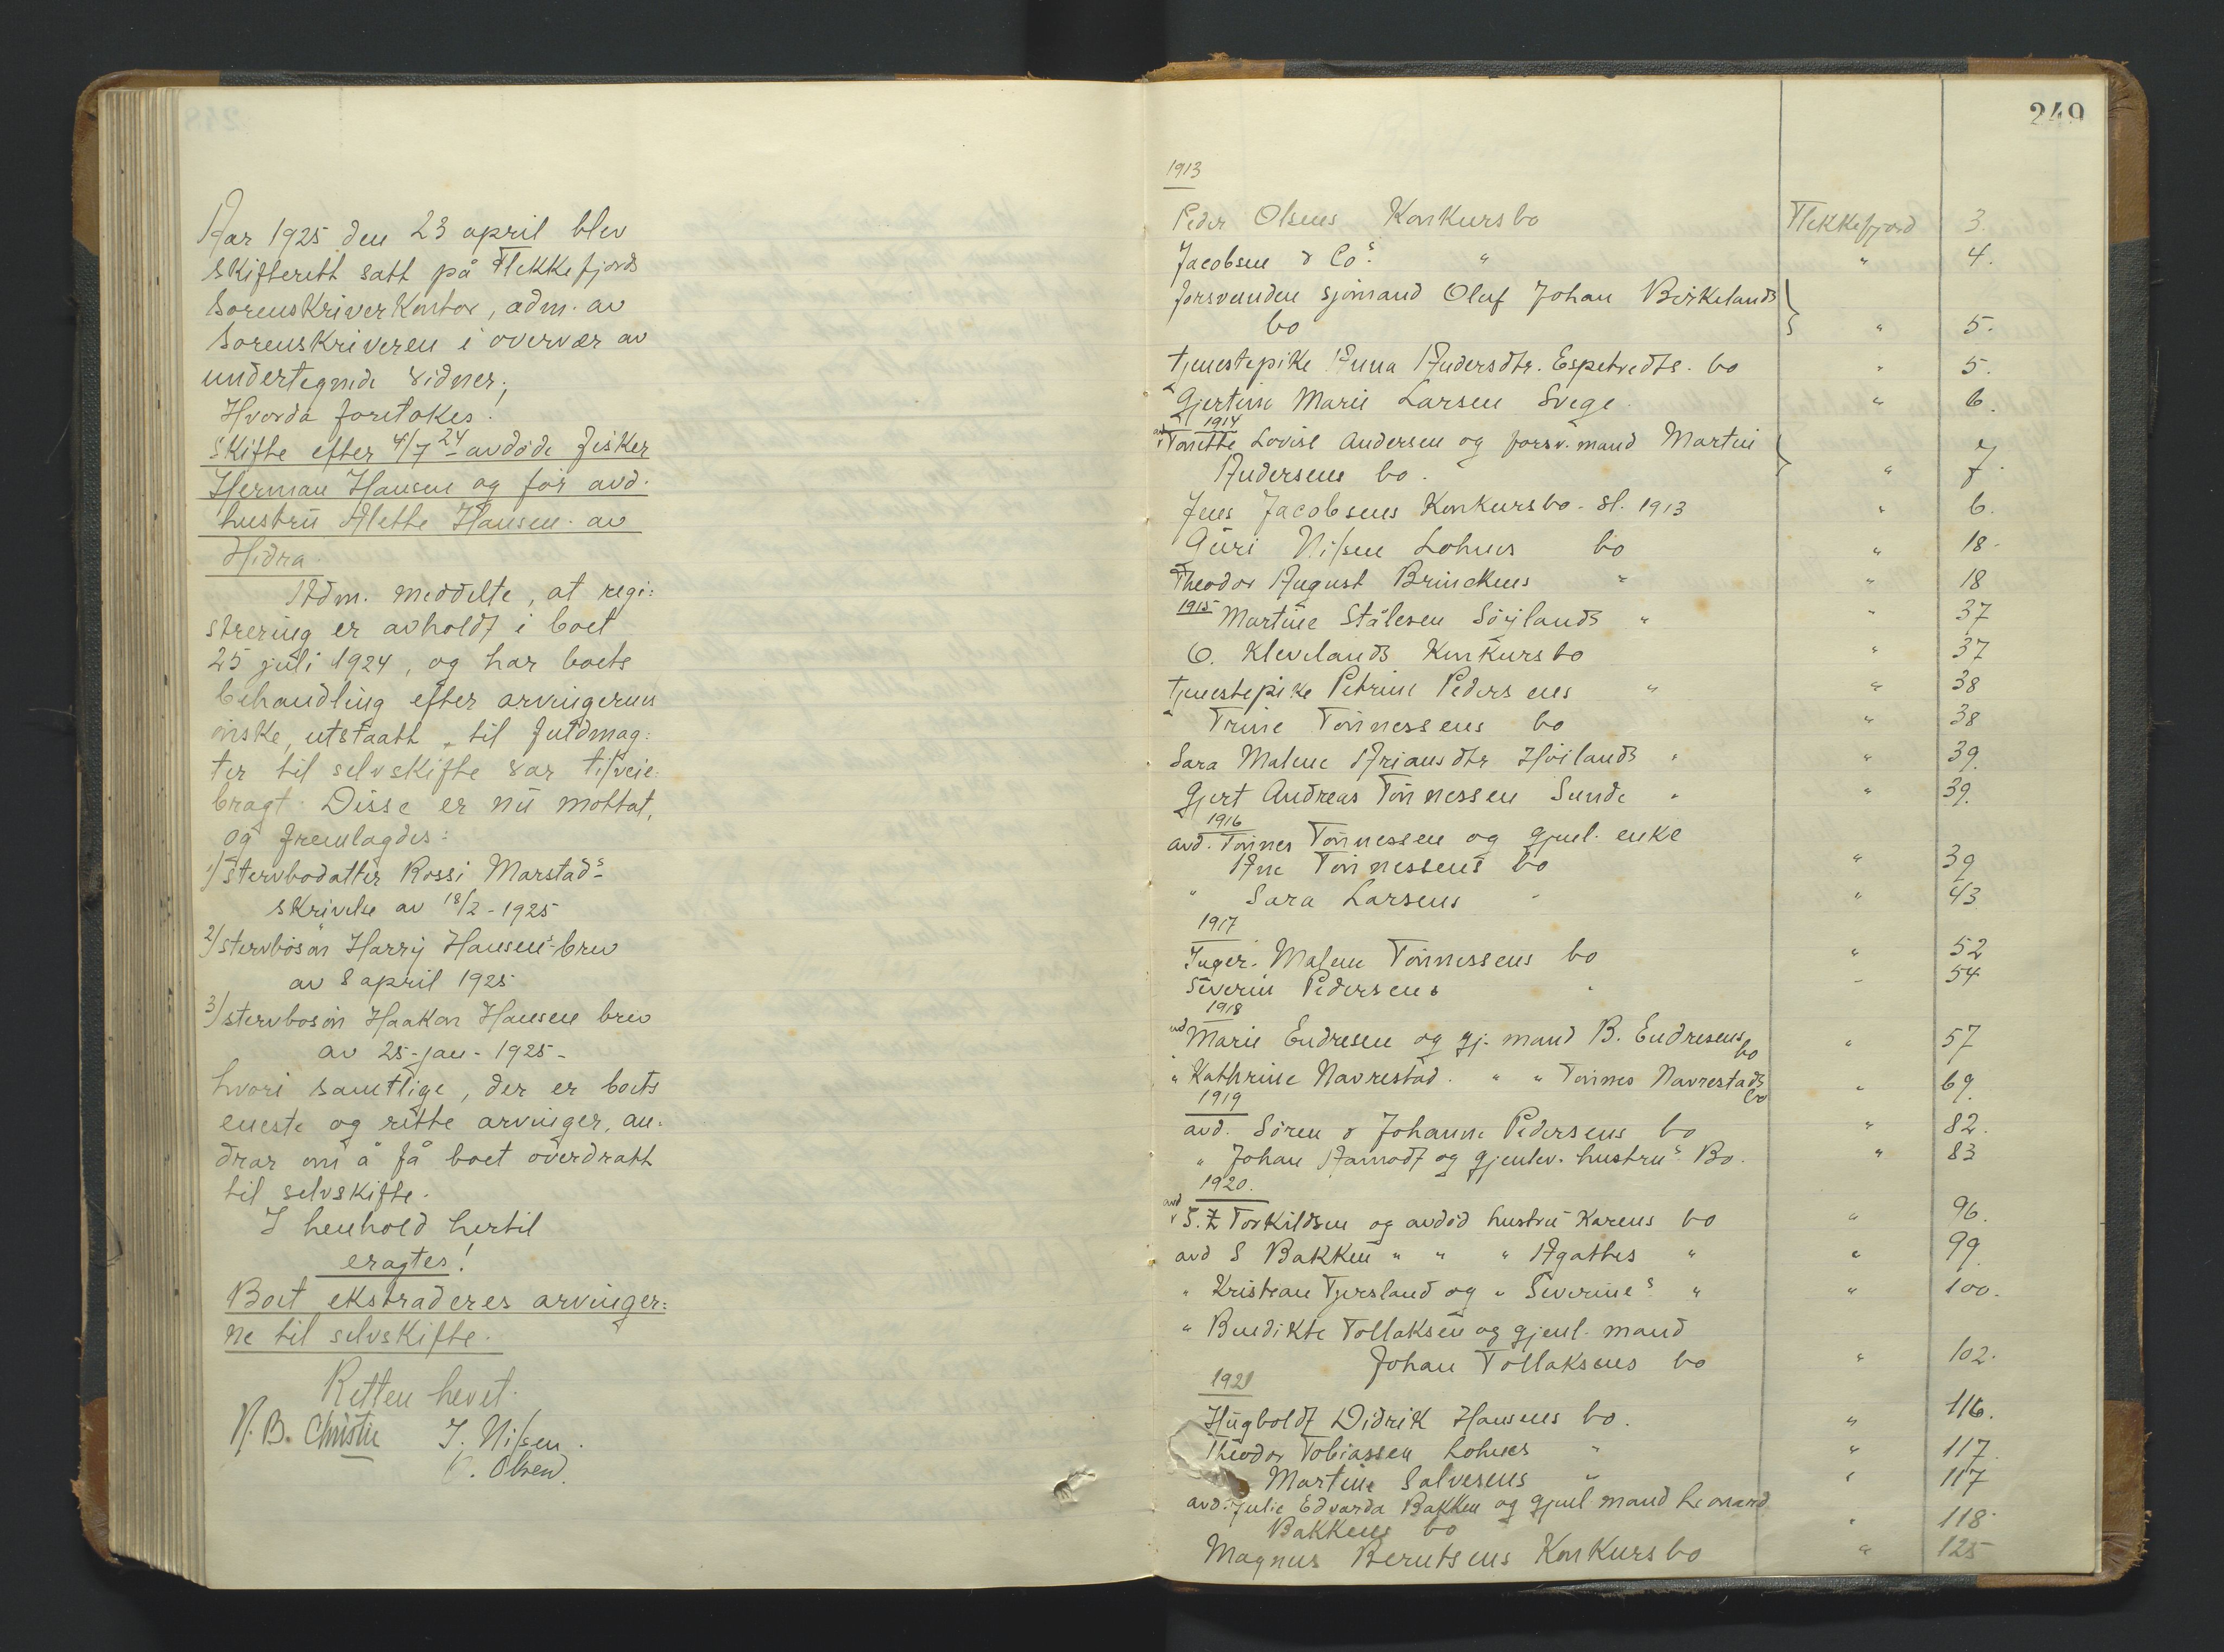 Aar 1925 den 23 april blev
skifterett satt på Flekkefjords
sorenskriverkontor, adm. av
sorenskriveren i overvær av
undertegnede vidner;
Hvorda foretokes:
Skifte efter 4/7 24 avdöde fisker
Herman Hansen og før avd.
hustru Alette Hansen av
Hidra.
Adm. meddelte, at regi:
strering er avholdt i boet
25 juli 1924, og har boets
behandling efter arvingernes
önske, utstaatt til fuldmag:
ter til selvskifte var tilveie:
bragt. Disse er nu mottat,
og fremlagdes:
1/ stervbodatter Rossi Marstads
skrivelse av 18/2 - 1925
2/ stervbosön Harry Hansens brev
av 8 april 1925
3/ stervbosön Haakon Hansen brev
av 25 - jan - 1925 -
hvori samtlige, der er boets
eneste og rette arvinger, an:
drar om å få boet overdratt
til selvskifte.
I henhold hertil
eragtes!
Boet ekstraderes arvinger:
ne til selvskifte.
Retten hevet.
N. B. Christie J. Nilsen.
O. Olsen.
249
1913
Peder Olsens Konkursbo Flekkefjord 3.
Jacobsen & Co.s " " 4.
forsvunden sjömand Oluf Johan Birkelands
bo " 5.
tjenestepike Anna Andersdtr. Espetvedts. bo " 5.
" Gjertine Marie Larsen Svege " 6.
1914
avd. Tonette Lovise Andersen og forsv. mand Martin
Andersens bo. " 7.
Jens Jacobsens Konkursbo - sl. 1913 " 6.
Guri Nilsen Lohnes bo " 18.
Theodor August Brinckens " " 18
1915 Martine Stålesen Söylands " " 37
O. Klevelands Konkursbo " 37
tjenestepike Petrine Pedersens " " 38
" Trine Tönnessens bo " 38
Sara Malene Ariansdtr Höilands " " 39.
Gjert Andreas Tönnessen Sunde " " 39.
1916
avd. Tönnes Tönnessen og gjenl. enke
Ane Tönnessens bo " 39
" Sara Larsens " " 43
1917
Inger Malene Tönnessens bo " 52
Severin Pedersens " " 54
1918
avd Marie Endresen og gj. mand B. Endresens bo " 57
" Kathrine Navrestad. " " Tönnes Navrestads bo " 69.
1919
avd. Sören & Johanne Pedersens bo " 82.
" Johan Aamodt og gjenlev. hustrus Bo. " 83
1920.
avd S. Z Torkildsen og avdöd hustru Karens bo " 96.
avd S Bakken " " " Agathes " " 99
" Kristian Tjersland og " Severines " " 100.
" Benedikte Tollaksen og gjenl. mand
Johan Tollaksens bo " 102.
1921
Hugboldt Didrik Hansens bo. " 116.
Theodor Tobiassen Lohnes " " 117
Martine Salvesens " " 117
avd. Julie Edvarda Bakken og gjenl mand Leonard
Bakkens bo " 118.
Magnus Berntsens Konkursbo " 125